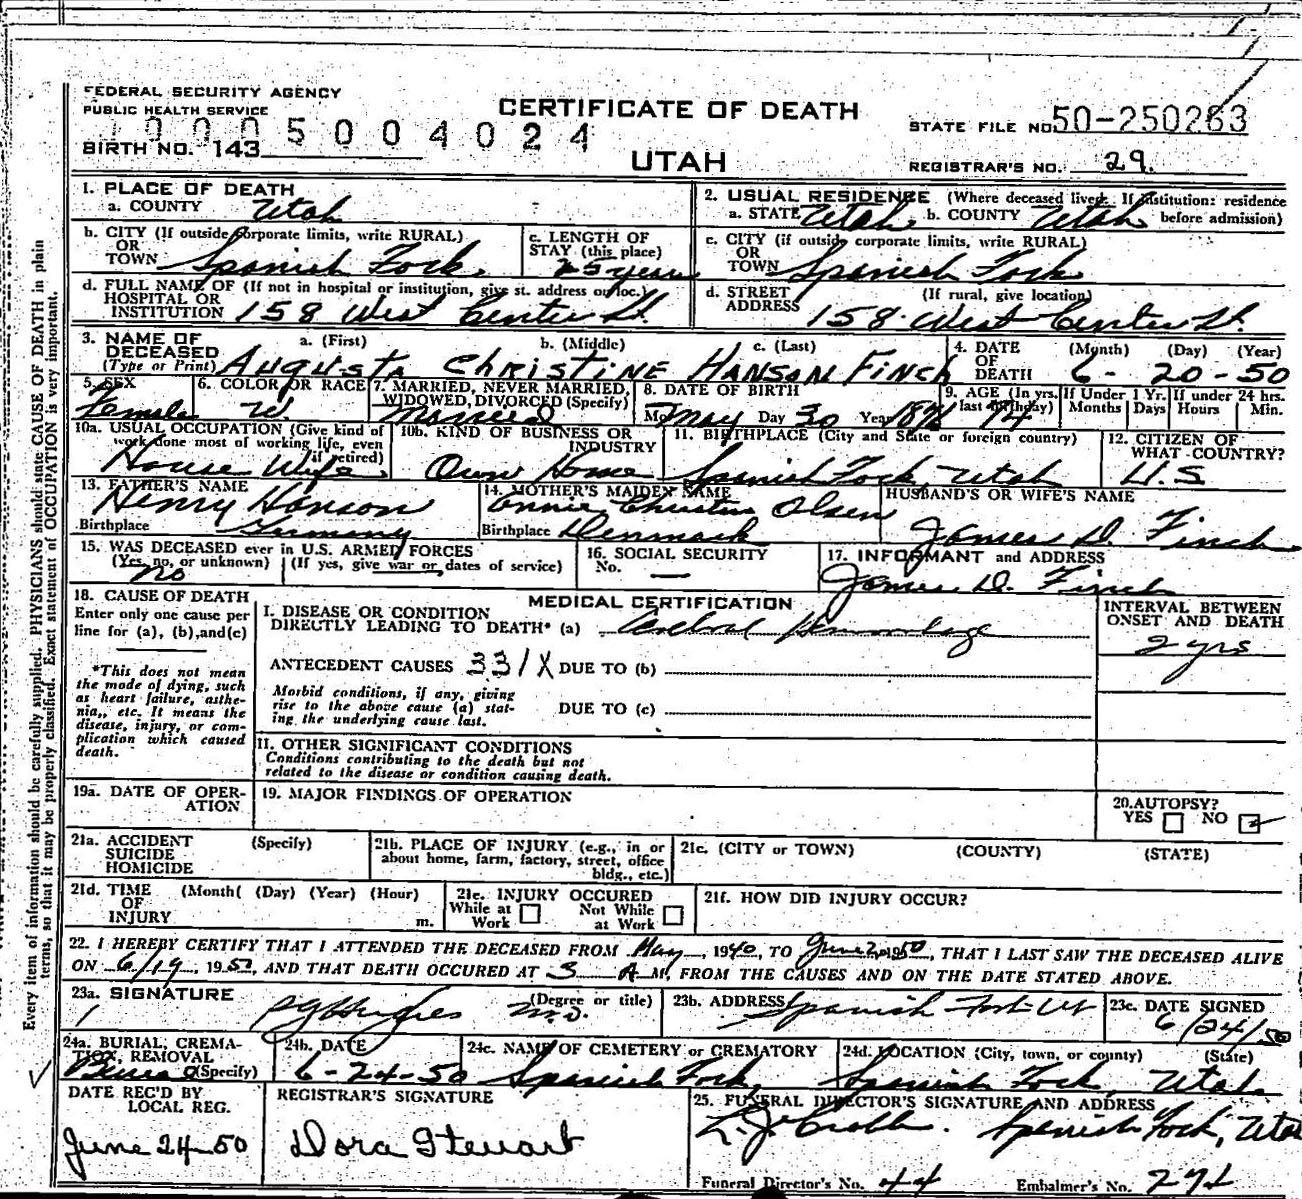 FEDERAL SECURITY AGENCY
PUBLIC HEALTH SERVICE
CERTIFICATE OF DEATH
5004024
STATE FILE NO. 50-250263
BIRTH NO. 143
UTAH
REGISTRAR'S NO. 29.
1. PLACE OF DEATH
a. COUNTY Utah
2. USUAL RESIDENCE (Where deceased lived. If institution: residence before admission)
a. STATE Utah b. COUNTY Utah
b. CITY (If outside corporate limits, write RURAL) OR TOWN Spanish Fork.
c. LENGTH OF STAY (this place) 25 years
c. CITY (if outside corporate limits, write RURAL) OR TOWN Spanish Fork
d. FULL NAME OF (If not in hospital or institution, give st. address or loc.) HOSPITAL OR INSTITUTION 158 West Center St.
d. STREET ADDRESS (If rural, give location) 158 West Center St.
3. NAME OF DECEASED (Type or Print) a. (First) b. (Middle) c. (Last)
Augusta Christine Hanson Finch
4. DATE OF DEATH (Month) (Day) (Year)
6- 20-50
5. SEX Female
6. COLOR OR RACE W.
7. MARRIED, NEVER MARRIED, WIDOWED, DIVORCED (Specify) Married
8. DATE OF BIRTH Mo. May Day 30 Year 1876
9. AGE (In yrs. last birthday) 74
If Under 1 Yr. Months Days
If under 24 hrs. Hours Min.
10a. USUAL OCCUPATION (Give kind of work done most of working life, even if retired) House Wife
10b. KIND OF BUSINESS OR INDUSTRY Own Home
11. BIRTHPLACE (City and State or foreign country) Spanish Fork, Utah
12. CITIZEN OF WHAT COUNTRY? U.S
13. FATHER'S NAME Henry Hanson
Birthplace Germany
14. MOTHER'S MAIDEN NAME Annie Christine Olsen
Birthplace Denmark
HUSBAND'S OR WIFE'S NAME
James D. Finch
15. WAS DECEASED ever in U.S. ARMED FORCES
(Yes, no, or unknown) (If yes, give war or dates of service)
no
16. SOCIAL SECURITY No. —
17. INFORMANT and ADDRESS
James D. Finch
18. CAUSE OF DEATH
Enter only one cause per line for (a), (b), and (c)
*This does not mean the mode of dying, such as heart failure, asthenia, etc. It means the disease, injury, or complication which caused death.
MEDICAL CERTIFICATION
I. DISEASE OR CONDITION DIRECTLY LEADING TO DEATH* (a) Cerebral Hemorrhage
INTERVAL BETWEEN ONSET AND DEATH
2 yrs
ANTECEDENT CAUSES 331X DUE TO (b)
Morbid conditions, if any, giving rise to the above cause (a) stating the underlying cause last.
DUE TO (c)
II. OTHER SIGNIFICANT CONDITIONS
Conditions contributing to the death but not related to the disease or condition causing death.
19a. DATE OF OPERATION
19. MAJOR FINDINGS OF OPERATION
20. AUTOPSY?
YES NO
21a. ACCIDENT SUICIDE HOMICIDE (Specify)
21b. PLACE OF INJURY (e.g., in or about home, farm, factory, street, office bldg., etc.)
21c. (CITY or TOWN) (COUNTY) (STATE)
21d. TIME OF INJURY (Month( (Day) (Year) (Hour) m.
21e. INJURY OCCURED
While at Work Not While at Work
21f. HOW DID INJURY OCCUR?
22. I HEREBY CERTIFY THAT I ATTENDED THE DECEASED FROM May, 1940, TO June 20, 1950, THAT I LAST SAW THE DECEASED ALIVE
ON 6/19 1950, AND THAT DEATH OCCURED AT 3 A M, FROM THE CAUSES AND ON THE DATE STATED ABOVE.
23a. SIGNATURE (Degree or title)
Hughes M.D.
23b. ADDRESS Spanish Fork Ut
23c. DATE SIGNED
6/24/50
24a. BURIAL, CREMATION, REMOVAL (Specify) Burial
24b. DATE
6-24-50
24c. NAME OF CEMETERY or CREMATORY
Spanish Fork,
24d. LOCATION (City, town, or county) (State)
Spanish Fork, Utah
DATE REC'D BY LOCAL REG.
June 24-50
REGISTRAR'S SIGNATURE
Dora Stewart
25. FUNERAL DIRECTOR'S SIGNATURE AND ADDRESS
Spanish Fork, Utah
Funeral Director's No. 44
Embalmer's No.
Every item of information should be carefully supplied. PHYSICIANS should state CAUSE OF DEATH in plain
terms, so that it may be properly classified. Exact statement of OCCUPATION is very important.